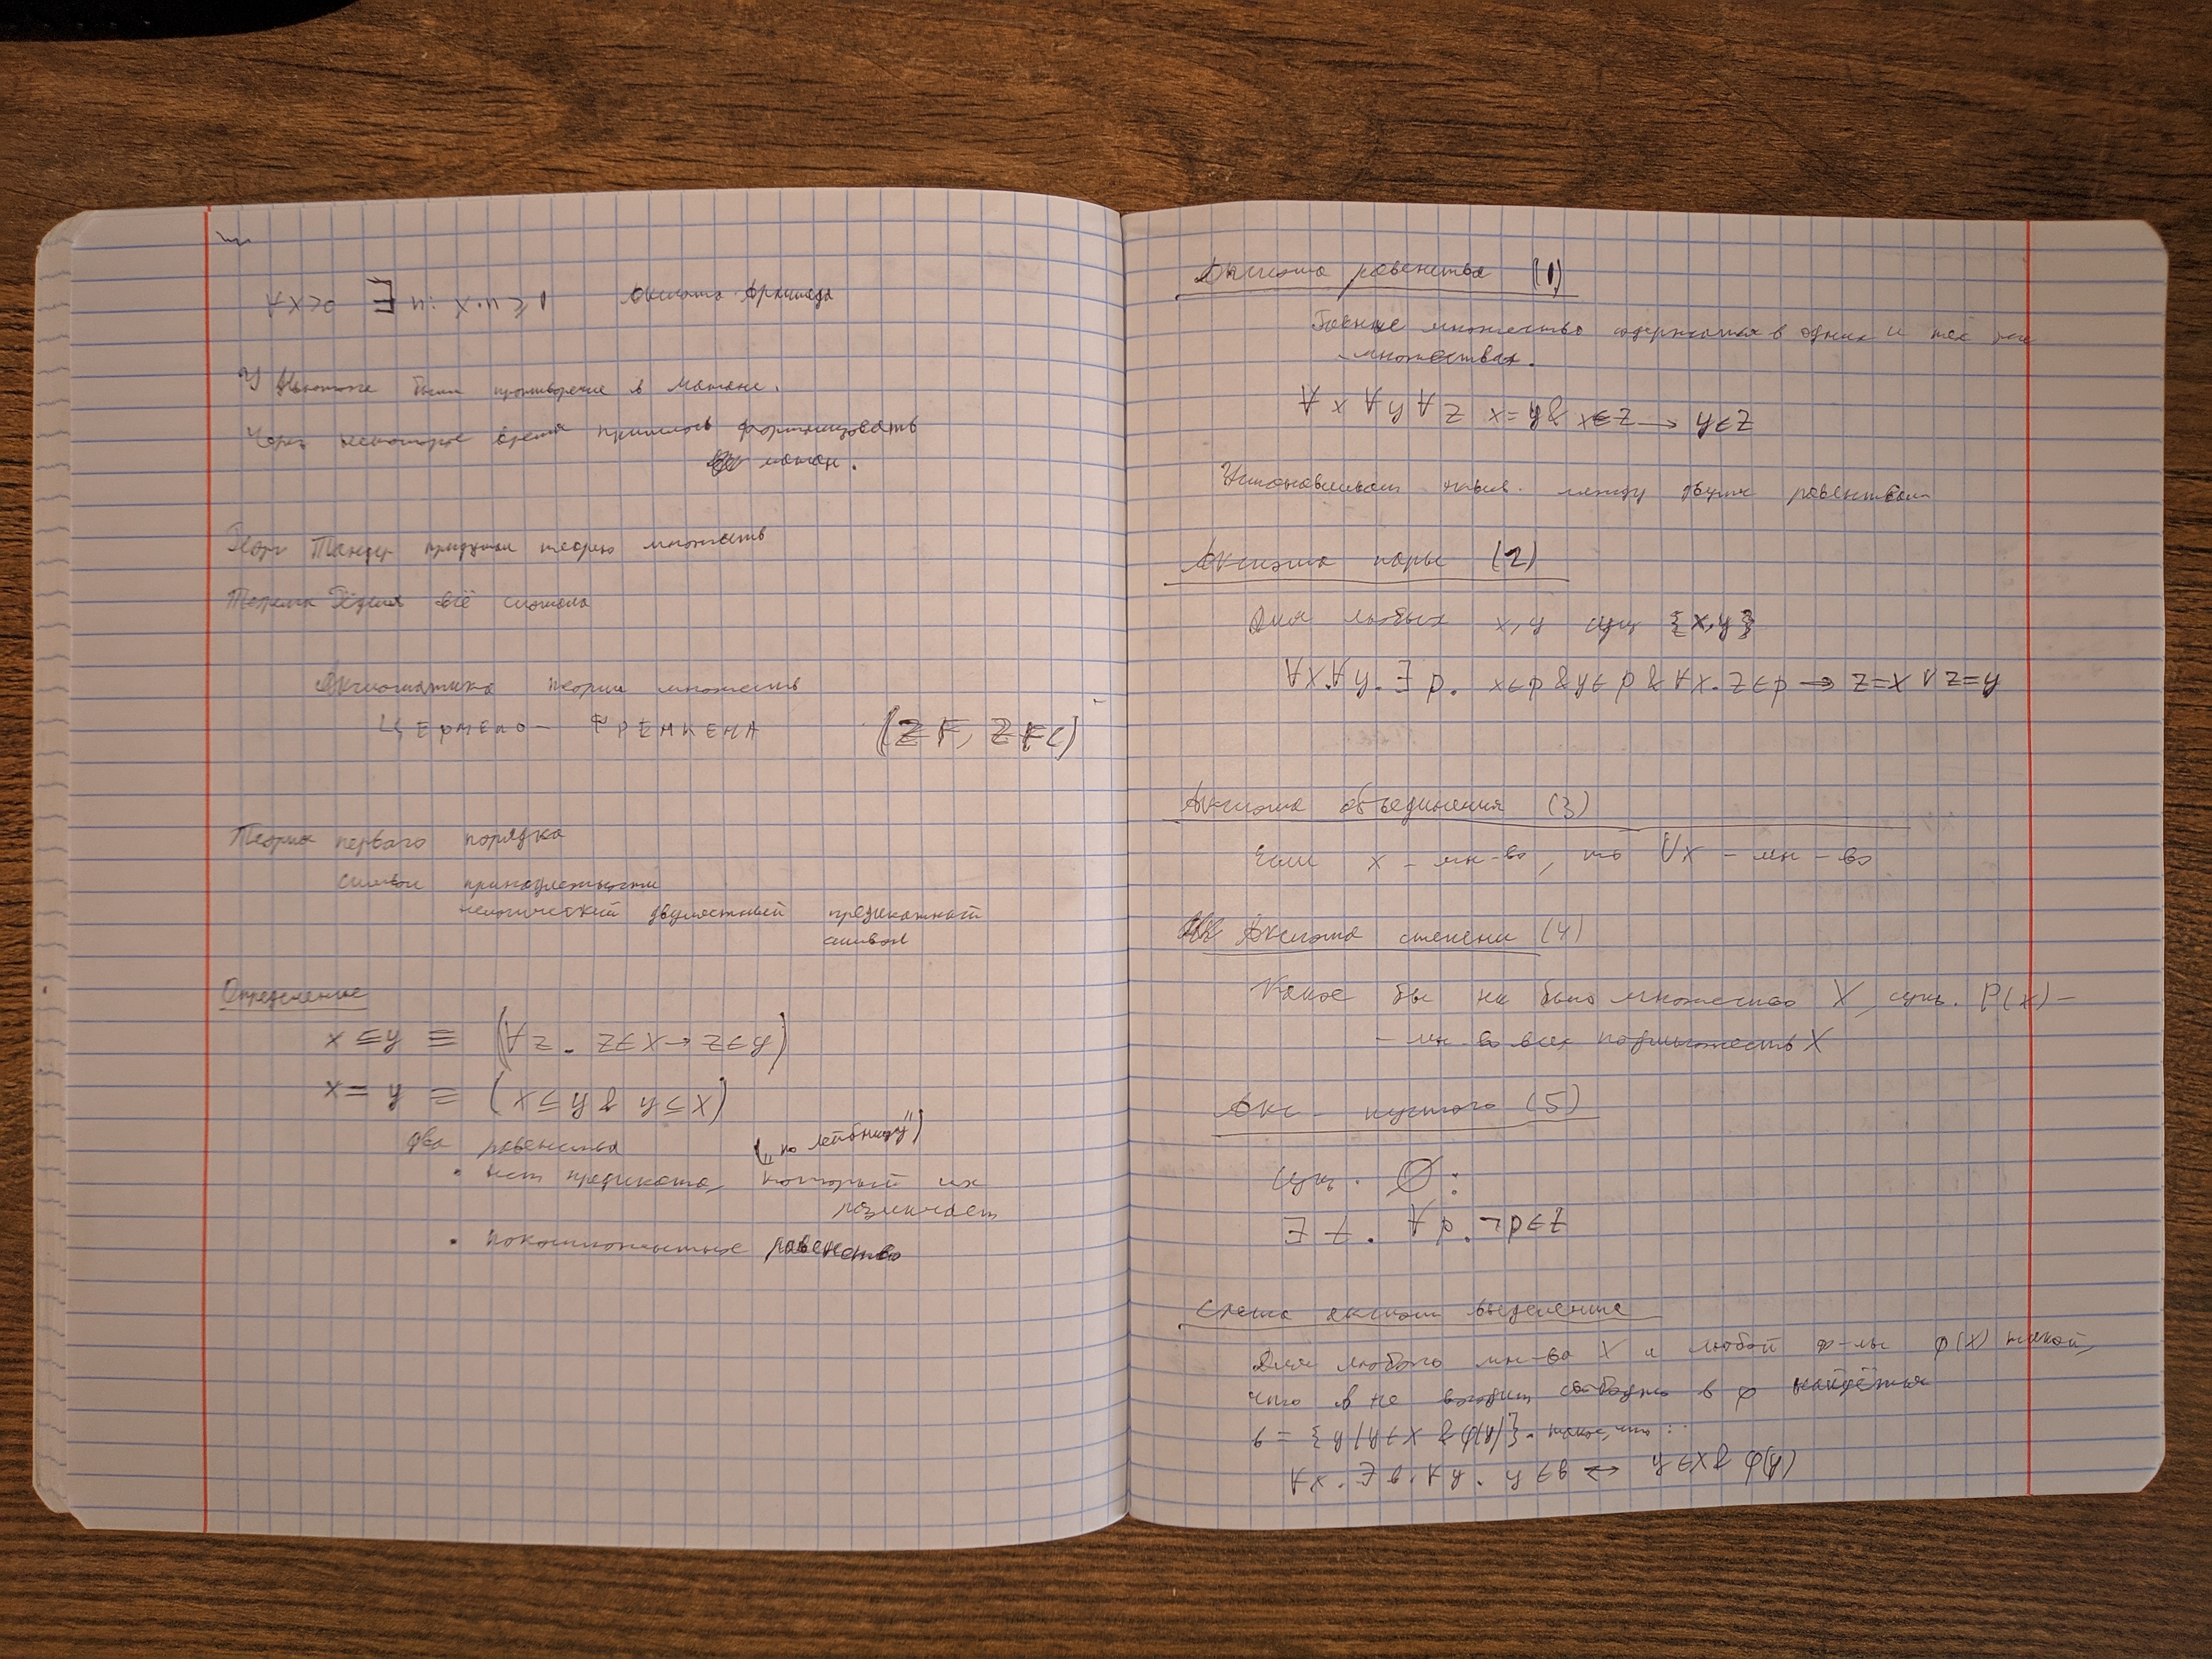 ∀x>0 ∃n: x·n ≥ 1 Аксиома Архимеда
У Ньютона были противоречие в матане.
Через некоторое время пришлось формализовать
матан.
Георг придумал теорию множеств
Теорема Гёделя всё сломала
Аксиоматика теории множеств
ЦЕРМЕЛО- ФРЕНКЕЛЯ (ZF, ZFC)
Теория первого порядка
символ принадлежности
нелогический двуместный предикатный
символ
Определение
x ⊆ y ≡ (∀z. z∈x → z∈y)
x = y ≡ (x⊆y & y⊆x)
два равенства ("по лейбницу")
• нет предиката, который их
различает
• равенство
Аксиома равенства (1)
Равные множества содержатся в одних и тех же
множествах.
∀x ∀y ∀z x=y & x∈z → y∈z
между двумя равенствами
Аксиома пары (2)
Для любых x,y сущ {x,y}
∀x.∀y.∃p. x∈p & y∈p & ∀x. z∈p → z=x ∨ z=y
Аксиома объединения (3)
Если x - мн-во, то ∪x - мн-во
Аксиома степени (4)
Какое бы ни было множество X, сущ. P(x) -
- мн-во всех подмножеств X
Акс. пустого (5)
Сущ. ∅:
∃t. ∀p. ¬p∈t
Схема аксиом выделения
Для любого мн-ва X и любой ф-лы φ(x) такой,
что b не входит свободно в φ найдётся
b = {y|y∈x & φ(y)}. такое, что:
∀x. ∃b. ∀y. y∈b ↔ y∈x & φ(y)